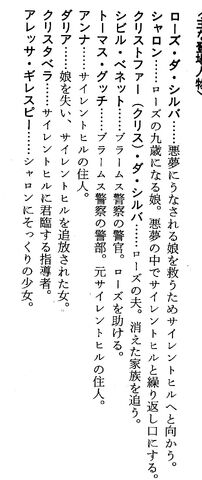 〈主な登場人物〉
ローズ・ダ・シルバ……悪夢にうなされる娘を救うためサイレントヒルへと向かう。
シャロン……ローズの九歳になる娘。悪夢の中でサイレントヒルと繰り返し口にする。
クリストファー（クリス）・ダ・シルバ……ローズの夫。消えた家族を追う。
シビル・ベネット……ブラームス警察の警官。ローズを助ける。
トーマス・グッチ……ブラームス警察の警部。元サイレントヒルの住人。
アンナ……サイレントヒルの住人。
ダリア……娘を失い、サイレントヒルを追放された女。
クリスタベラ……サイレントヒルに君臨する指導者。
アレッサ・ギレスピー……シャロンにそっくりの少女。